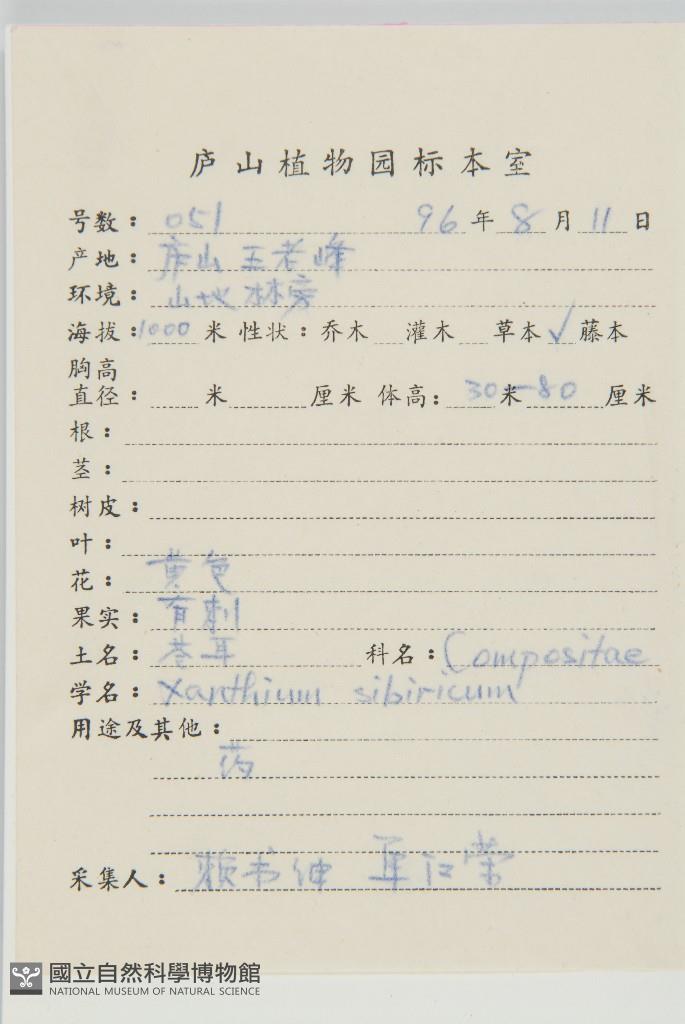 庐山植物园标本室
号数：051 96年8月11日
产地：庐山五老峰
环境：山地林旁
海拔：1000米 性状：乔木 灌木 草本✓藤本
胸高
直径： 米 厘米 体高：30米－80厘米
根：
茎：
树皮：
叶：
花：黄色
果实：有刺
土名：苍耳 科名：Compositae
学名：Xanthium sibiricum
用途及其他：
药
采集人：赖书绅
國立自然科學博物館
NATIONAL MUSEUM OF NATURAL SCIENCE